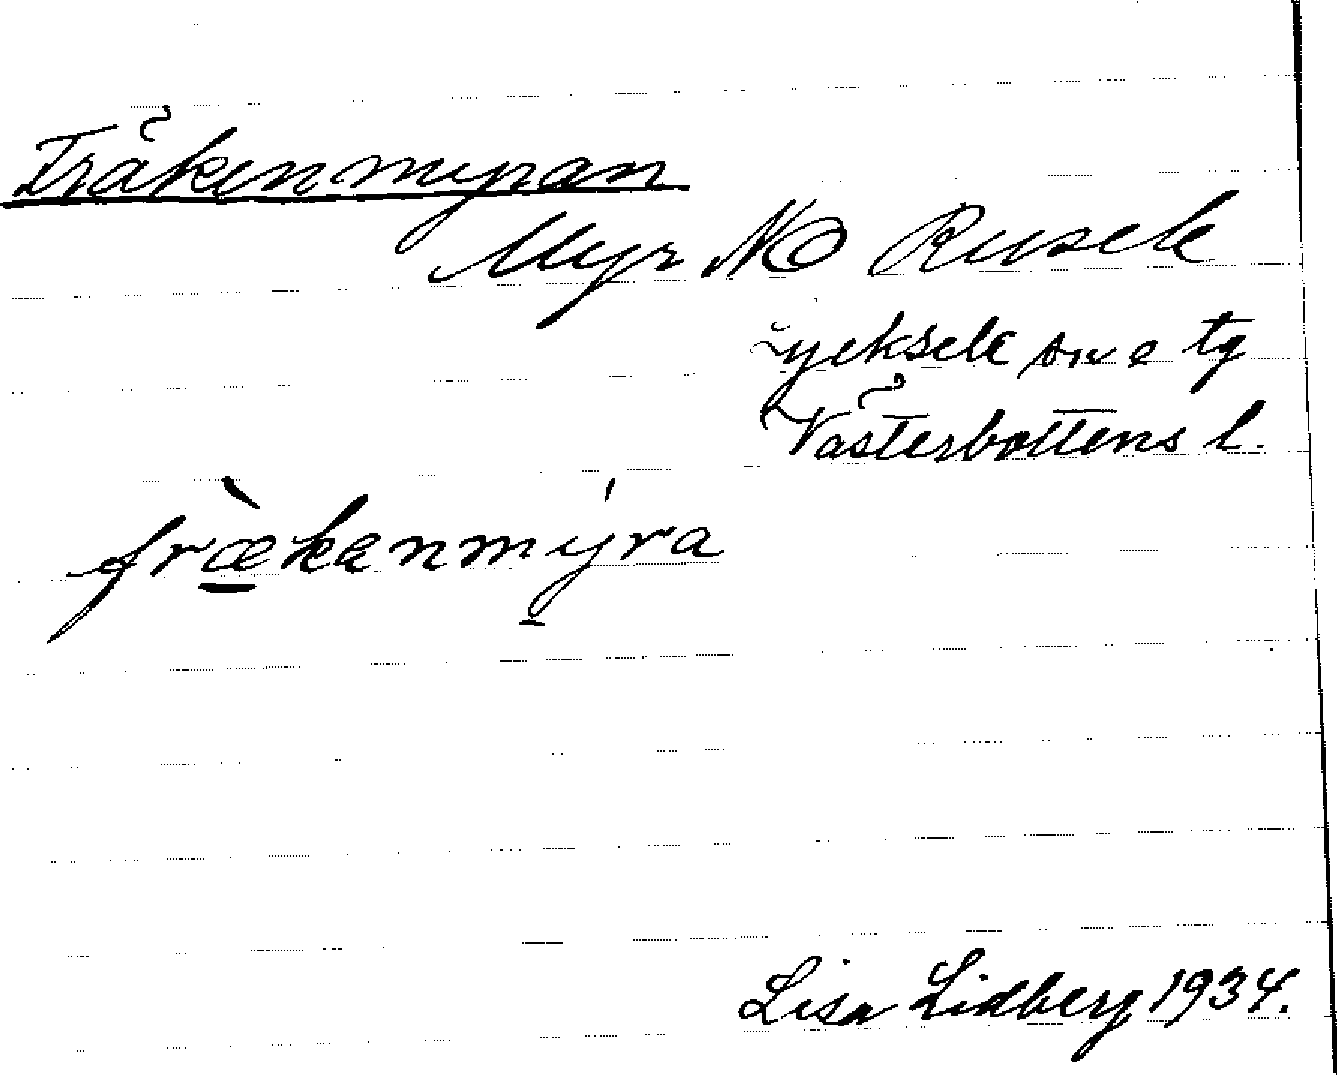 Fräkenmyran
Myr NO Rusele
Lycksele sn o tg
Västerbottens l.
frækenmýra
Lisa Lidberg 1934.